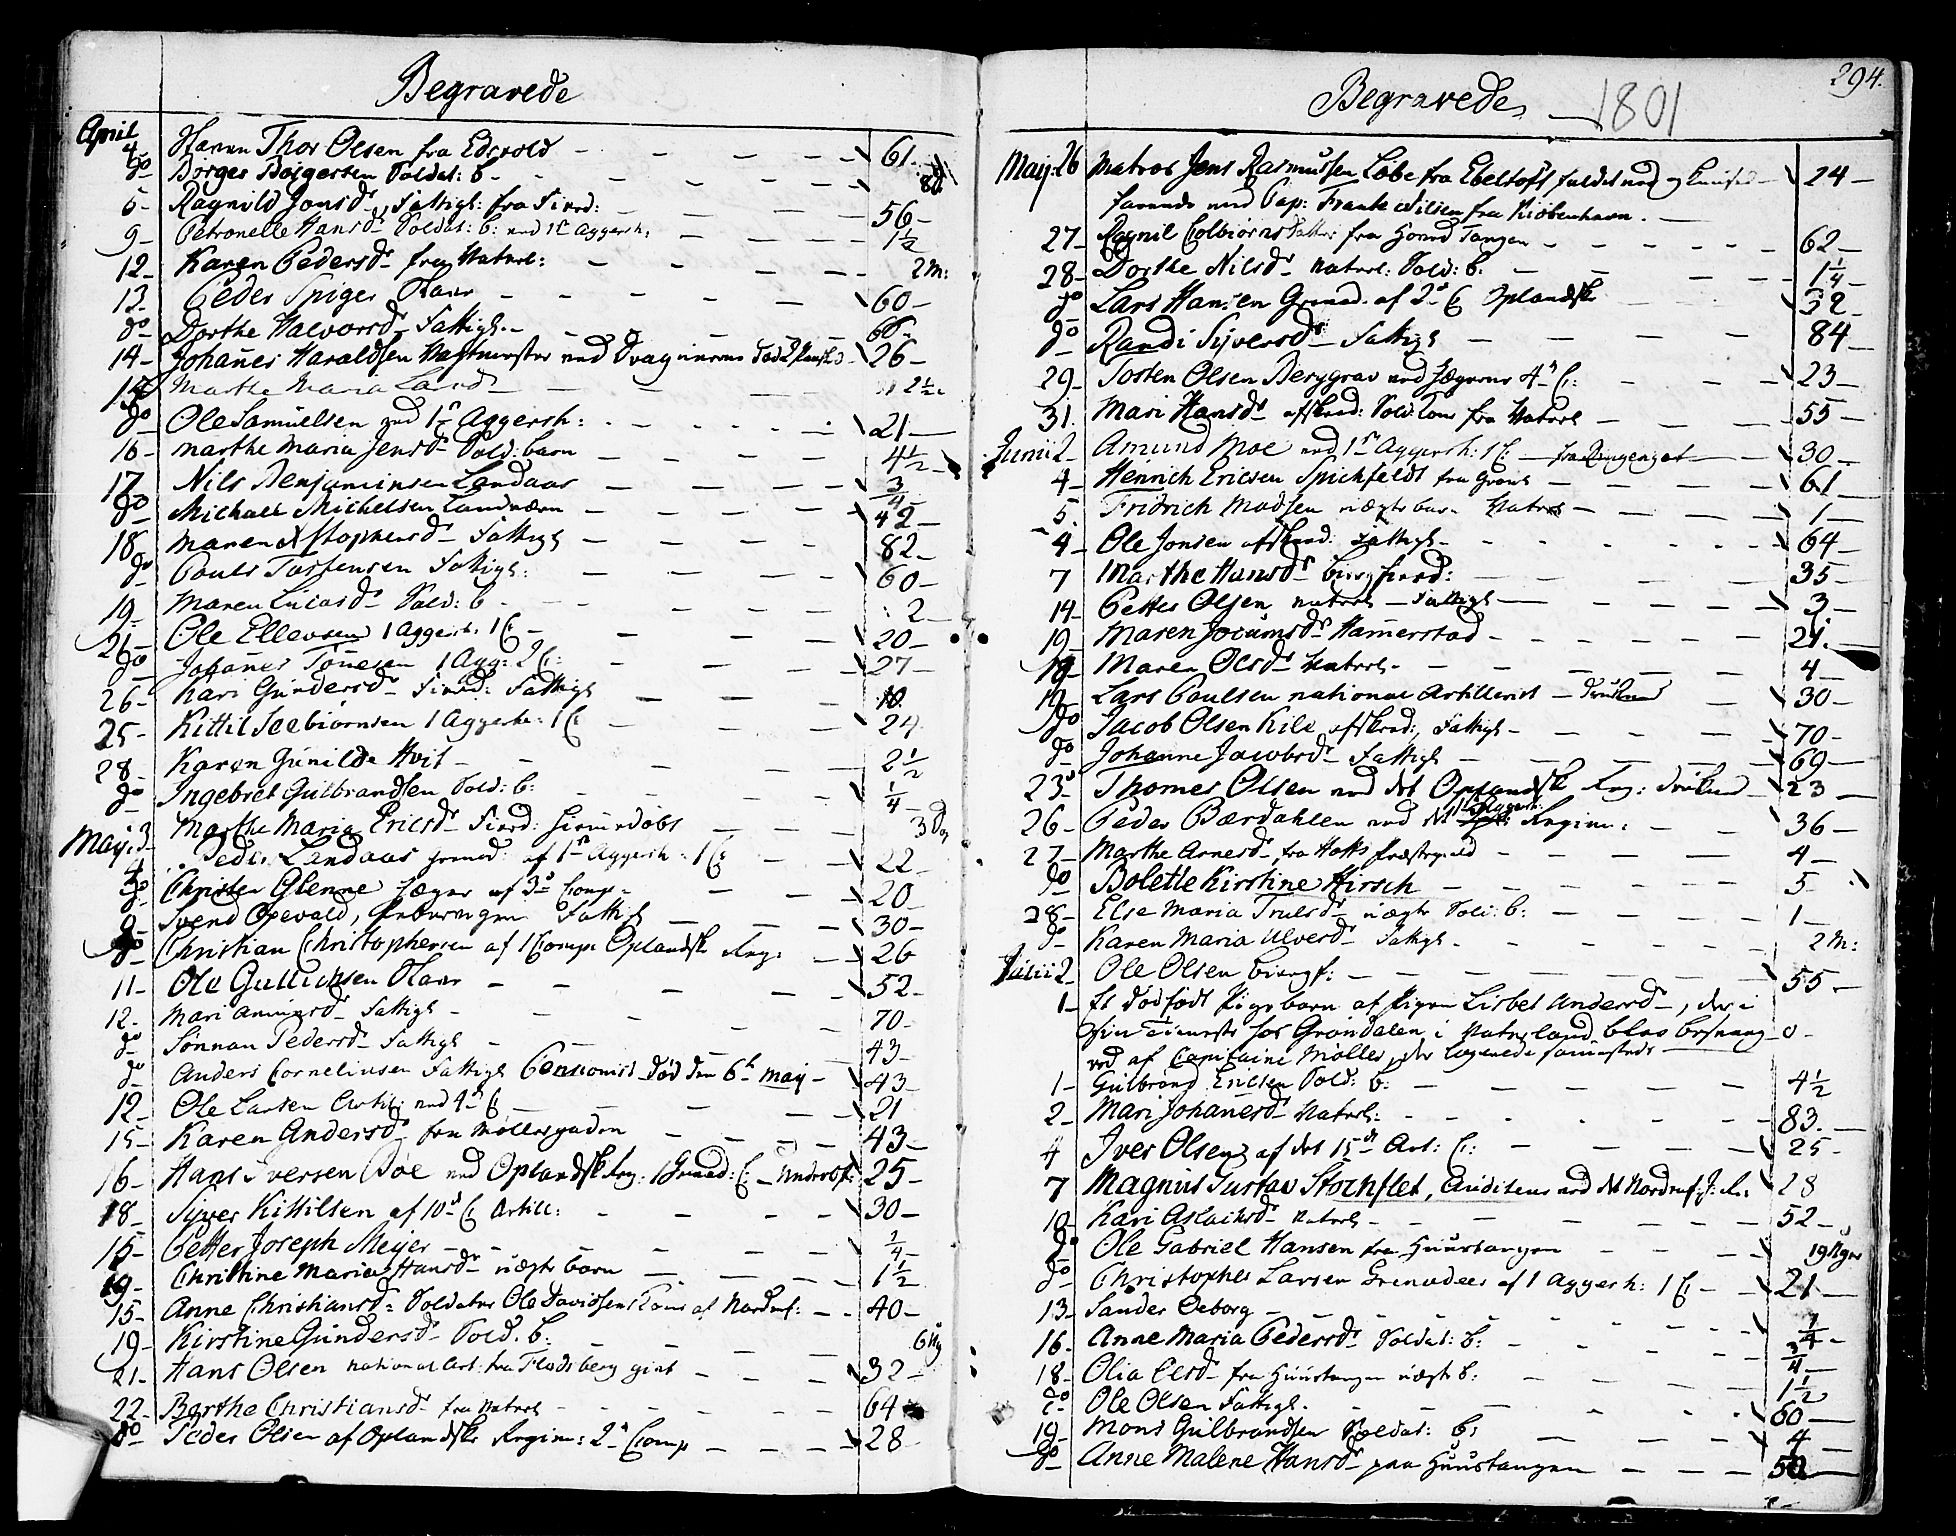 Begravede
April 4 Haavn Thor Olsen fra Edsvold 61
do Börges Börgersen Soldat: b. 8 d:
6 Ragnild Jonsd. Fattigl: fra Fierd: 56
9 Petronelle Hansd. Soldat: b: ved 1te Aggersh: 1½
12 Karen Pedersd. fra Vaterl: 2 M:
13 Peder Spiger Slave 60
do Dorthe Halvorsd. Fattigl. 66
14 Johannes Haraldsen ved Dragunerne 26
15 Marthe Maria Lund 2½
do Ole Samuelsen ved 1te Aggersh: 21
16 Marthe Maria Jensd. Sold: barn 4½
17 Nils Benjaminsen Landaas ¾
do Michael Michelsen Landværn 42
18 Maren Fattigl 82
do Pouls Torstensen Fattigl: 60
19 Maren Lucasd. Sold: b 2
21 Ole Ellevsen 1 Aggersh. 1 C: 20
do Johannes Tönnesen 1 Agg: 2 C: 27
26 Kari Gundersd. Fierd: Fattigl 10
25 Kittil Seebiörnsen 1 Aggersh: 1 C: 24
28 Karen Gunilde Hvit 2½
do Ingebret Gulbrandsen Sold: b: ¼
Maji 3 Marthe Maria Ericsd. Fierd: 3 Da
4 Peder Landaas Grenad: af 1te Aggersh: 1 C: 22
do Christen Glenne Jæger af 3de Comp. 20
9 Svend Opevald, Fattigl 30
do Christian Christophersen af 1 Comp: Oplandske Reg: 26
11 Ole Gullichsen Slave 52
12 Mari Fattigl 70
do Sönnau Pedersd. Fattigl 43
do Anders Corneliusen Fattigl Pensionist död den 6te Maij 43
12 Ole Larsen Artil: ved 4de C: 21
15 Karen Andersd. fra Möllergaden 43
16 Hans Iversen Böe ved Oplandske Reg: 1 Grenad: C: Underoff: 25
18 Syver Kittilsen af 10de C: Artill: 30
15 Petter Joseph Meyer ¼
19 Christine Maria Hansd. uægte barn 1½
15 Anne Christiansd: Soldaten Ole Davidsens Kone af Nordenf: 40
19 Kirstine Gundersd. Sold. b: 6 Ug
21 Hans Olsen National Art: fra Flodsberg gield 32
22 Barthe Christiansd. fra Vaterl 64
do Peder Olsen af Oplandske Regim: 2de Comp 28
294.
Begravede 1801
Maij: 26 Matros Jens Rasmussen Löbe fra Ebeltoft faldet ned og 24
farende med Cap: Frantz Nilsen fra Kiöbenhavn.
27 Ragnil Colbiörnsdatter fra Hoved Tangen 62
28 Dorthe Nilsd. Vaterl: Sold: b: 1¼
do Lars Hansen Grenad. af 2de C Oplandske 32
do Randi Syversd. Fattigl 84
29 Tosten Olsen Berggrav ved Jægerne 4de C: 23
31. Mari Hansd. afsked: Sold: Kone fra Vaterl 55
Junii 2 Amund Moe ved 1te Aggersh: 1 C: 30
4 Heinrich Ericsen Spichfeldt fra Grönl 61
5. Fridrich Madsen uægte barn Vaterl 1
4 Ole Jonsen afsked: Fattigl 64
7 Marthe Hansd. 35
14 Petter Olsen Vaterl Fattigl 3
19 Maren Jocumsd. Hammerstad 21.
19 Maren Olsd. Vaterl. 4
19 Lars Poulsen national Artillerist druknet 30
do Jacob Olsen Kile afsked:, Fattigl 70
do Johanne Jacobsd. Fattigl 69
23de Thomes Olsen ved det Oplandske Reg: druknet 23
26 Peder Bærdahlen ved det 1te Aggersh: Regim: 36
27 Marthe Arnesd. fra Hofs Præstegield 4
do Bolette Kirstine Hirsch 5
28 Else Maria Trulsd. uægte Sold: b: 1
do Karen Maria Ulversd. Fattigl 2 M:
Julii 2 Ole Olsen 55
1 Et dödfödt Pigebarn af Pigen Lisbet Andersd., der i
sin Tieneste hos Gröndalen i Vaterland blev besvang- 0
red af Capitaine Möller, der logerede sammesteds
1 Gulbrand Ericsen Sold: b: 4½
2 Mari Johannesd. Vaterl: 83.
4 Iver Olsen af det 15de Art: C: 25
7 Magnus Gustav Stochflet, Auditeur ved det Nordenf: J: R: 28
10 Kari Aslachsd. Vaterl 52
do Ole Gabriel Hansen fra Huustangen 19 Uger
do Christopher Larsen Grenadeer af 1 Aggersh: 1 C: 21
13 Sander Oeborg ¼
16. Anne Maria Pedersd. Soldat: b: ¾
18 Olia Elsd. fra Huustangen uægte b: 1½
do Ole Olsen Fattigl. 60
19 Mons Gulbrandsen Soldat: b: 4
do Anne Malene Hansd. paa Huustangen 50